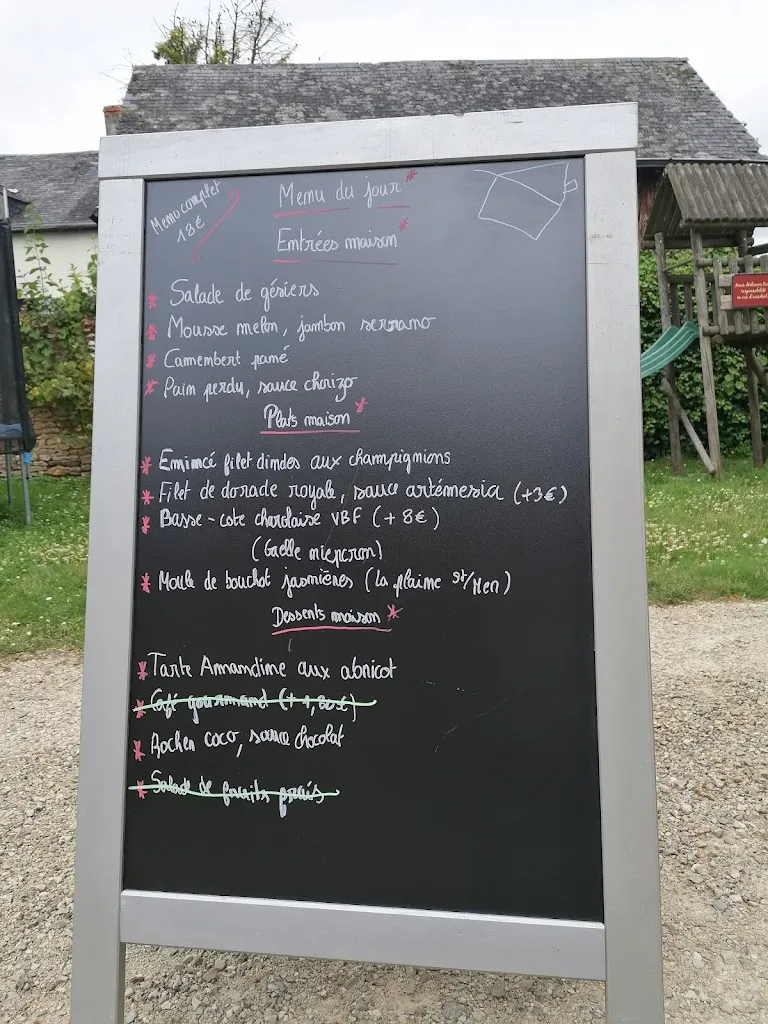 Menu complet
18€
Menu du jour*
Entrées maison*
* Salade de gésiers
* Mousse melon, jambon serrano
* Camembert pané
* Pain perdu, sauce chorizo
Plats maison*
* Emincé filet dindes aux champignions
* Filet de dorade royale, sauce artémesia (+3€)
* Basse-cote charolaise VBF (+8€)
(Gaelle miepcron)
* Moule de bouchot jasmières (la plaine st/Mer)
Desserts maison*
* Tarte Amandine aux abricot
* Café gourmand (+1,80€)
* Rocher coco, sauce chocolat
* Salade de fruits frais